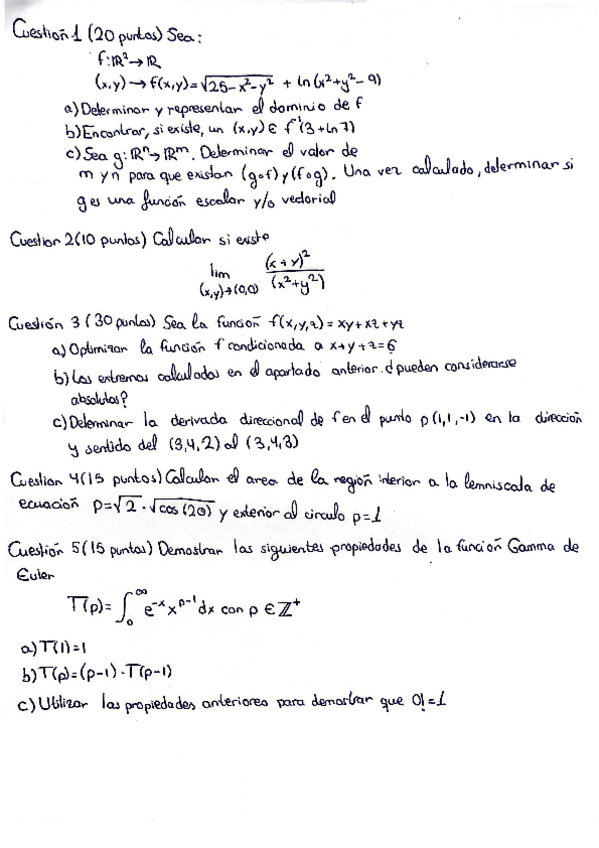 Cuestión 1 (20 puntos) Sea:
f: ℝ² → ℝ
(x,y) → f(x,y) = √(25-x²-y²) + ln(x²+y²-9)
a) Determinar y representar el dominio de f
b) Encontrar, si existe, un (x,y) ∈ f⁻¹(3+ln7)
c) Sea g: ℝⁿ → ℝᵐ. Determinar el valor de
m y n para que existan (g∘f) y (f∘g). Una vez calculado, determinar si
g es una función escalar y/o vectorial
Cuestion 2 (10 puntos) Calcular si existe
lim (x,y)→(0,0) (x+y)²/(x²+y²)
Cuestión 3 (30 puntos) Sea la función f(x,y,z) = xy+xz+yz
a) Optimizar la función f condicionada a x+y+z=6
b) Los extremos calculados en el apartado anterior. ¿pueden considerarse
absolutos?
c) Determinar la derivada direccional de f en el punto p(1,1,-1) en la dirección
y sentido del (3,4,2) al (3,4,3)
Cuestion 4 (15 puntos) Calcular el area de la región interior a la lemniscata de
ecuación ρ=√2·√cos(2θ) y exterior al circulo ρ=1
Cuestión 5 (15 puntos) Demostrar las siguientes propiedades de la función Gamma de
Euler
Γ(p) = ∫₀^∞ e^-x x^p-1 dx con p ∈ ℤ⁺
a) Γ(1)=1
b) Γ(p)=(p-1)·Γ(p-1)
c) Utilizar las propiedades anteriores para demostrar que 0!=1